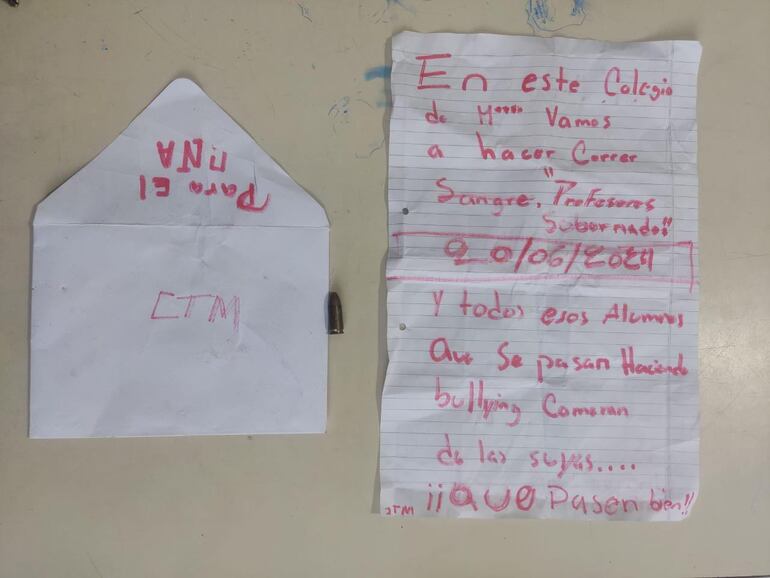 Para El
UNA
CTM
En este Colegio
de M***** Vamos
a hacer Correr
Sangre, "Profesores
Sobornados"
20/06/2024
Y todos esos Alumnos
que se pasan Haciendo
bullying Comeran
de las suyas....
¡¡QUE Pasen bien!!